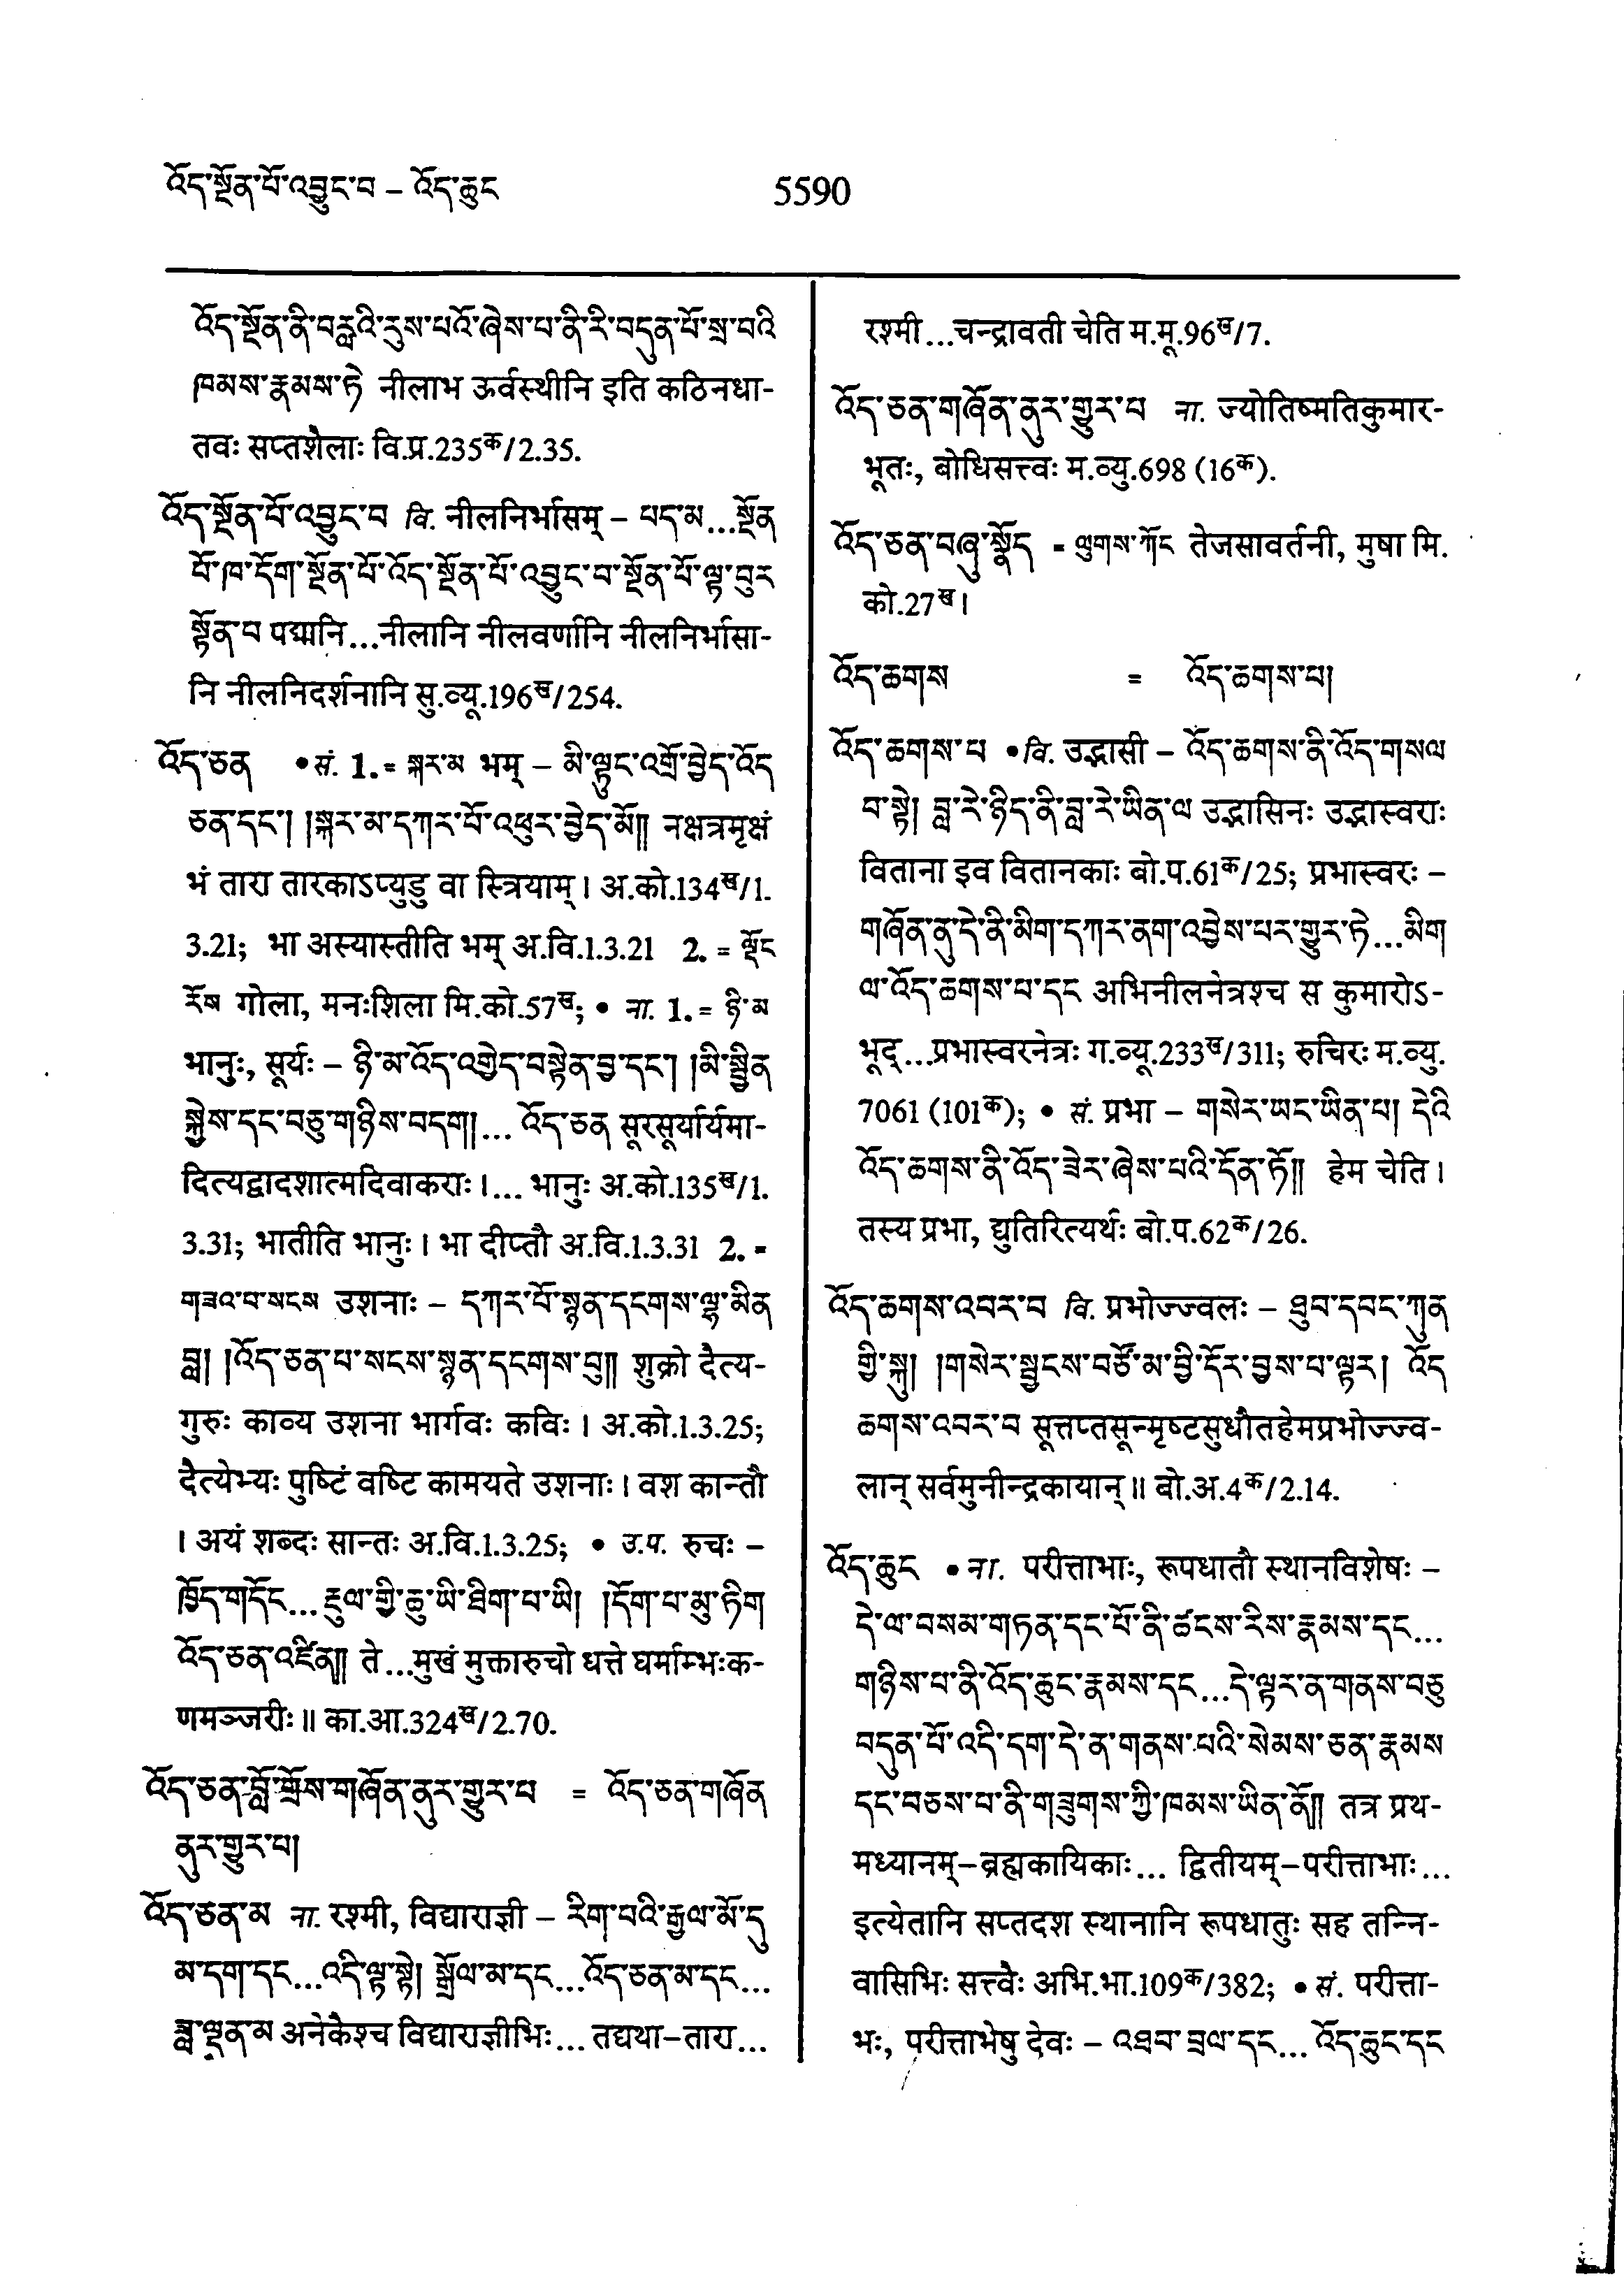 འོད་སྔོན་པོ་འབྱུང་བ – འོད་ཆུང
5590
འོད་སྔོན་ནི་བརླའི་རུས་པའོ་ཞེས་པ་ནི་རི་བདུན་པོ་སྲ་བའི
ཁམས་རྣམས་ཏེ नीलाभ ऊर्वस्थीनि इति कठिनधा-
तवः सप्तशैलाः वि.प्र.235क/2.35.
འོད་སྔོན་པོ་འབྱུང་བ वि. नीलनिर्भासम् – པད་མ...སྔོན
པོ་ཁ་དོག་སྔོན་པོ་འོད་སྔོན་པོ་འབྱུང་བ་སྔོན་པོ་ལྟ་བུར
སྟོན་པ पद्मानि...नीलानि नीलवर्णानि नीलनिर्भासा-
नि नीलनिदर्शनानि सु.व्यू.196ख/254.
འོད་ཅན •सं. 1.= སྐར་མ भम् – མི་ལྟུང་འགྲོ་བྱེད་འོད
ཅན་དང་། །སྐར་མ་དཀར་པོ་འཕུར་བྱེད་མོ༎ नक्षत्रमृक्षं
भं तारा तारकाऽप्युडु वा स्त्रियाम् । अ.को.134ख/1.
3.21; भा अस्यास्तीति भम् अ.वि.1.3.21 2. = ལྡོང
རོས गोला, मनःशिला मि.को.57ख; • ना. 1.= ཉི་མ
भानुः, सूर्यः – ཉི་མ་འོད་འགྱེད་བསྟེན་བྱ་དང་། །མི་སྦྱིན
སྐྱེས་དང་བཅུ་གཉིས་བདག།... འོད་ཅན सूरसूर्यार्यमा-
दित्यद्वादशात्मदिवाकराः ।... भानुः अ.को.135ख/1.
3.31; भातीति भानुः । भा दीप्तौ अ.वि.1.3.31 2. =
གཟའ་པ་སངས उशनाः – དཀར་པོ་སྙན་དངགས་ལྷ་མིན
བླ། །འོད་ཅན་པ་སངས་སྙན་དངགས་བུ༎ शुक्रो दैत्य-
गुरुः काव्य उशना भार्गवः कविः । अ.को.1.3.25;
दैत्येभ्यः पुष्टिं वष्टि कामयते उशनाः । वश कान्तौ
। अयं शब्दः सान्तः अ.वि.1.3.25; • उ.प. रुचः –
ཁྱོད་གདོང... རྡུལ་གྱི་ཆུ་ཡི་ཐིག་པ་ཡི། །དོག་པ་མུ་ཏིག
འོད་ཅན་འཛིན༎ ते ...मुखं मुक्तारुचो धत्ते घर्माम्भःक-
णमञ्जरीः ॥ का.आ.324ख/2.70.
འོད་ཅན་བློ་གྲོས་གཞོན་ནུར་གྱུར་པ = འོད་ཅན་གཞོན
ནུར་གྱུར་པ།
འོད་ཅན་མ ना. रश्मी, विद्याराज्ञी – རིག་པའི་རྒྱལ་མོ་དུ
མ་དག་དང...འདི་ལྟ་སྟེ། སྒྲོལ་མ་དང...འོད་ཅན་མ་དང...
ཟླ་ལྡན་མ अनेकैश्च विद्याराज्ञीभिः... तद्यथा–तारा...
रश्मी ...चन्द्रावती चेति म.मू.96ख/7.
འོད་ཅན་གཞོན་ནུར་གྱུར་པ ना. ज्योतिष्मतिकुमार-
भूतः, बोधिसत्त्वः म.व्यु.698 (16क).
འོད་ཅན་བཞུ་སྣོད = ལུགས་ཀོང तेजसावर्तनी, मुषा मि.
को.27ख।
འོད་ཆགས = འོད་ཆགས་པ།
འོད་ཆགས་པ •वि. उद्भासी – འོད་ཆགས་ནི་འོད་གསལ
བ་སྟེ། བླ་རེ་ཉིད་ནི་བླ་རེ་ཡིན་ལ उद्भासिनः उद्भास्वराः
विताना इव वितानकाः बो.प.61क/25; प्रभास्वरः –
གཞོན་ནུ་དེ་ནི་མིག་དཀར་ནག་འབྱེས་པར་གྱུར་ཏེ...མིག
ལ་འོད་ཆགས་པ་དང अभिनीलनेत्रश्च स कुमारोऽ-
भूद्...प्रभास्वरनेत्रः ग.व्यू.233ख/311; रुचिरः म.व्यु.
7061 (101क); • सं. प्रभा – གསེར་ཡང་ཡིན་པ། དེའི
འོད་ཆགས་ནི་འོད་ཟེར་ཞེས་པའི་དོན་ཏོ༎ हेम चेति ।
तस्य प्रभा, द्युतिरित्यर्थः बो.प.62क/26.
འོད་ཆགས་འབར་བ वि. प्रभोज्ज्वलः – ཐུབ་དབང་ཀུན
གྱི་སྐུ། །གསེར་སྦྱངས་བཙོ་མ་བྱི་དོར་བྱས་པ་ལྟར། འོད
ཆགས་འབར་བ सूत्तप्तसून्मृष्टसुधौतहेमप्रभोज्ज्व-
लान् सर्वमुनीन्द्रकायान् ॥ बो.अ.4क/2.14.
འོད་ཆུང • ना. परीत्ताभाः, रूपधातौ स्थानविशेषः –
དེ་ལ་བསམ་གཏན་དང་པོ་ནི་ཚངས་རིས་རྣམས་དང...
གཉིས་པ་ནི་འོད་ཆུང་རྣམས་དང...དེ་ལྟར་ན་གནས་བཅུ
བདུན་པོ་འདི་དག་དེ་ན་གནས་པའི་སེམས་ཅན་རྣམས
དང་བཅས་པ་ནི་གཟུགས་ཀྱི་ཁམས་ཡིན་ནོ༎ तत्र प्रथ-
मध्यानम्–ब्रह्मकायिकाः... द्वितीयम्–परीत्ताभाः...
इत्येतानि सप्तदश स्थानानि रूपधातुः सह तन्नि-
वासिभिः सत्त्वैः अभि.भा.109क/382; • सं. परीत्ता-
भः, परीत्ताभेषु देवः – འཐབ་བྲལ་དང... འོད་ཆུང་དང